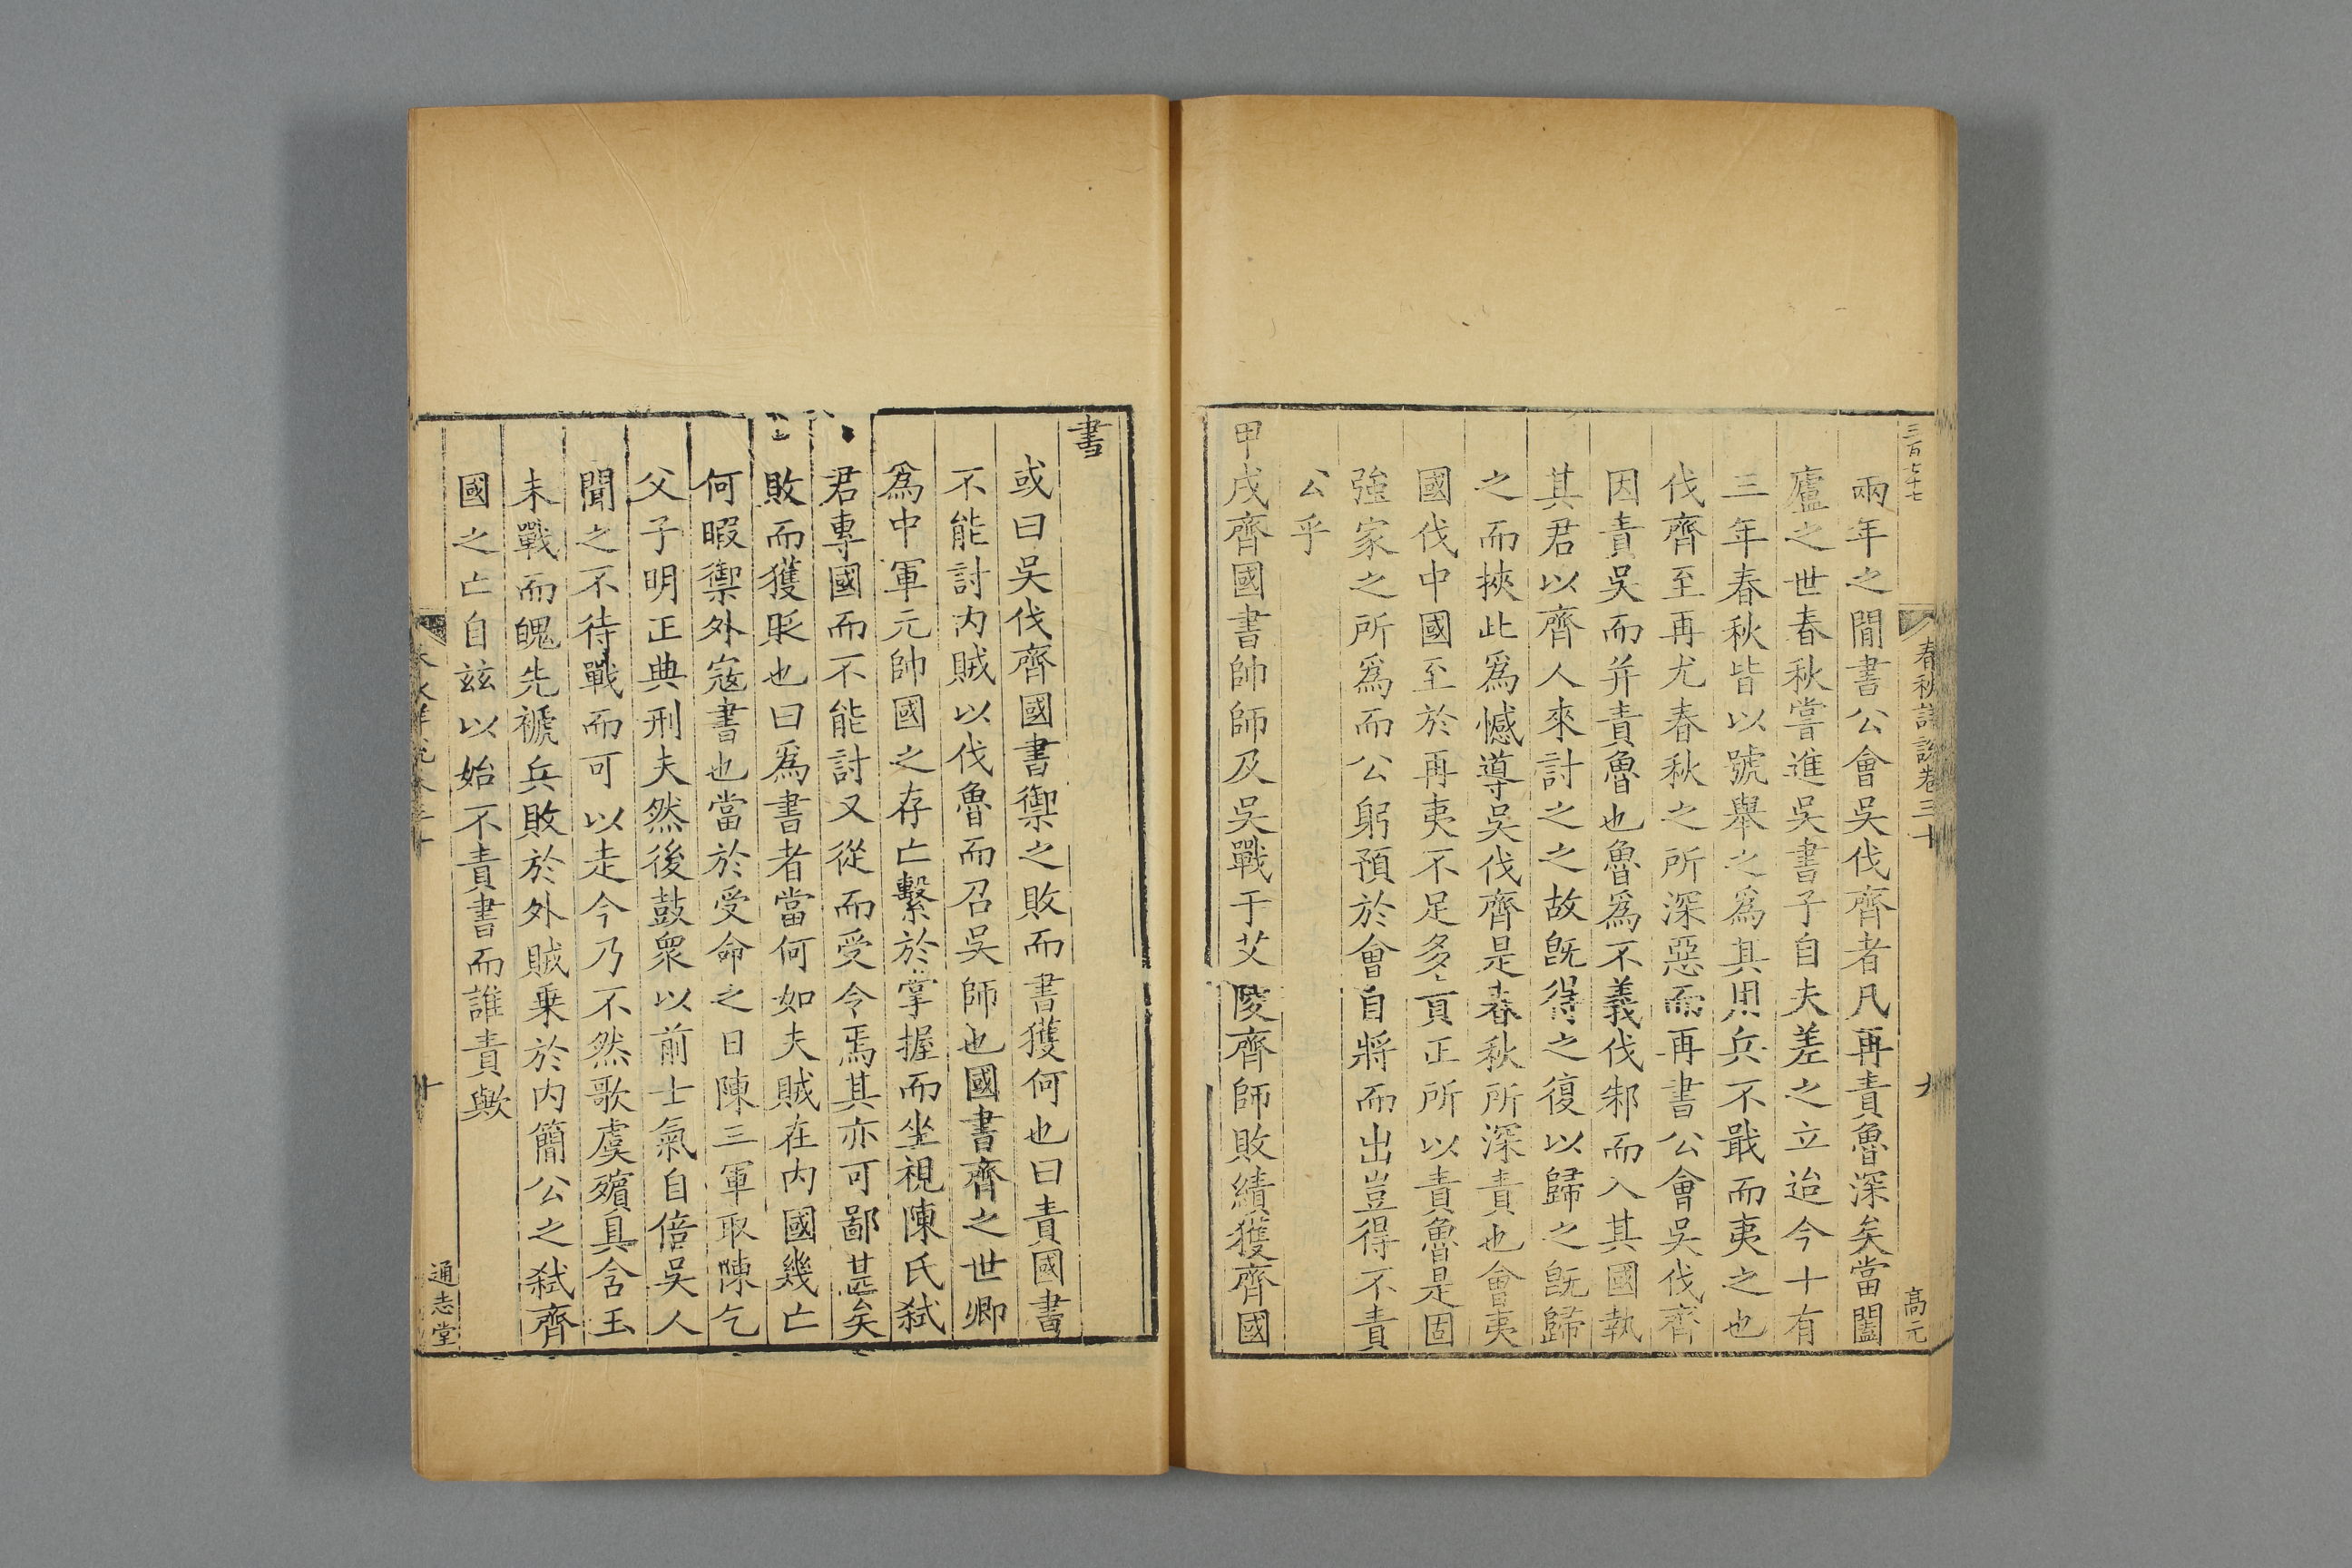 三百七十七
春秋詳說卷三十
九
高元
兩年之閒書公會吳伐齊者凡再責魯深矣當闔
廬之世春秋嘗進吳書子自夫差之立迨今十有
三年春秋皆以號舉之為其用兵不戢而夷之也
伐齊至再尤春秋之所深惡而再書公會吳伐齊
因責吳而并責魯也魯為不義伐邾而入其國執
其君以齊人來討之之故旣得之復以歸之旣歸
之而挾此為憾導吳伐齊是春秋所深責也會夷
國伐中國至於再夷不足多責正所以責魯是固
強家之所為而公躬預於會自將而出豈得不責
公乎
甲戌齊國書帥師及吳戰于艾陵齊師敗績獲齊國
書
或曰吳伐齊國書禦之敗而書獲何也曰責國書
不能討內賊以伐魯而召吳師也國書齊之世卿
為中軍元帥國之存亡繫於掌握而坐視陳氏弑
君專國而不能討又從而受令焉其亦可鄙甚矣
敗而獲冣也曰為書者當何如夫賊在內國幾亡
何暇禦外寇書也當於受命之日陳三軍取陳乞
父子明正典刑夫然後鼓衆以前士氣自倍吳人
聞之不待戰而可以走今乃不然歌虞殯具含玉
未戰而魄先褫兵敗於外賊乗於內簡公之弑齊
國之亡自兹以始不責書而誰責歟
十
通志堂